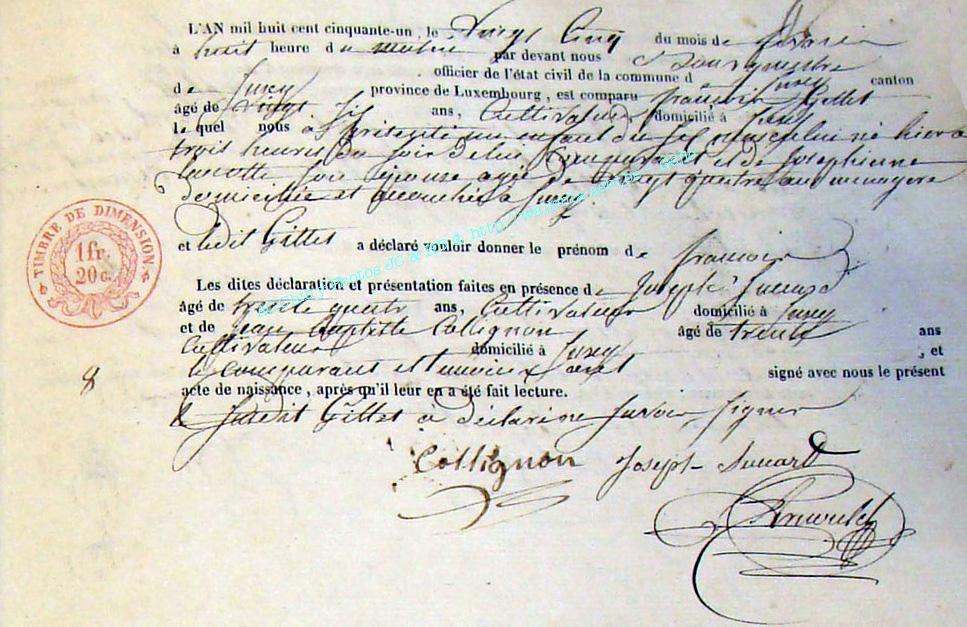 L'AN mil huit cent cinquante-un, le Vingt Cinq du mois de février
à huit heure du matin par devant nous
officier de l'état civil de la commune d canton
de Jusey province de Luxembourg, est comparu françois Gillet
âgé de vingt six ans, Cultivateur domicilié à Jusey
le quel nous à présenté un enfant du masculin né hier à
trois heures du soir de lui Comparant et de Josephinne
son épouse agée de vingt quatre ans menagere
domiciliée et accouchée à Jusey
TIMBRE DE DIMENSION
1 fr.
20 c.
et ledit Gillet a déclaré vouloir donner le prénom de françois
Les dites déclaration et présentation faites en présence de Joseph Suvard
âgé de trente quatre ans, Cultivateur domicilié à Jusey
et de Jean Baptiste Collignon âgé de trente ans
Cultivateur domicilié à Jusey , et
le comparant et temoins ont signé avec nous le présent
8
acte de naissance, après qu'il leur en a été fait lecture.
le susdit Gillet à déclaré ne savoir signer
Collignon Joseph